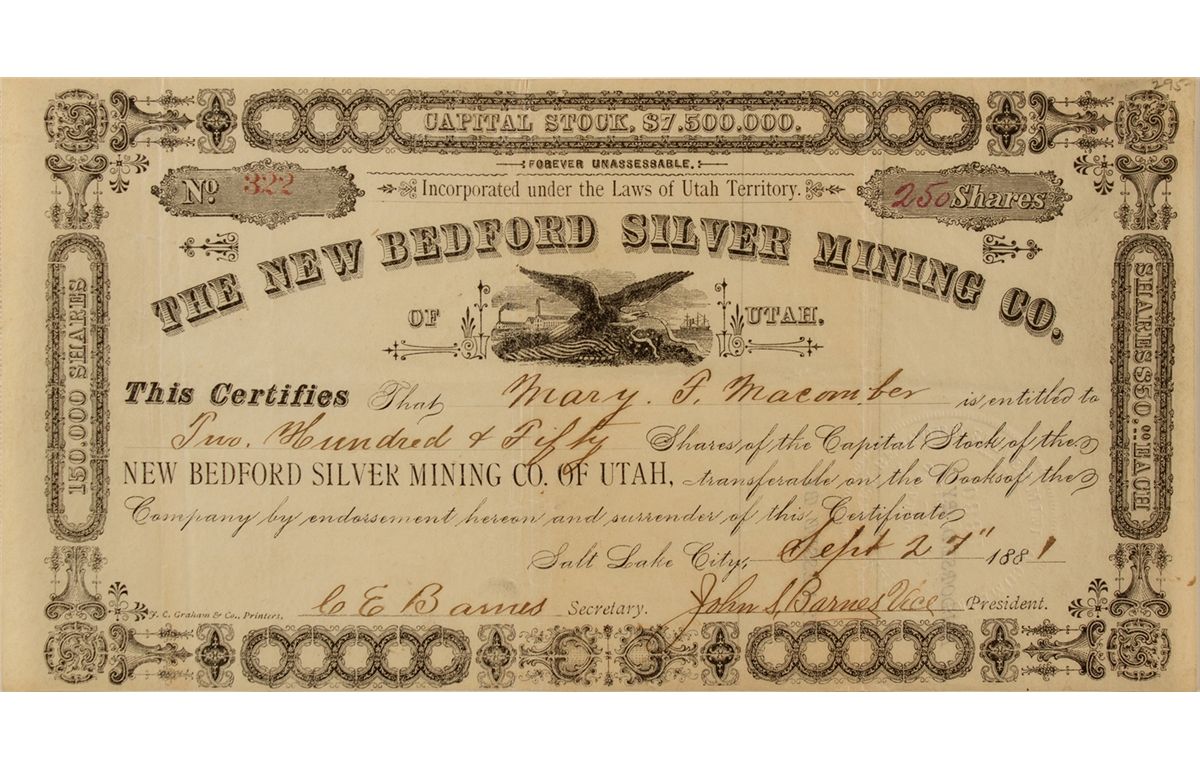 295
CAPITAL STOCK, $7.500.000.
FOREVER UNASSESSABLE.
No 322
Incorporated under the Laws of Utah Territory.
250 Shares
THE NEW BEDFORD SILVER MINING CO.
OF UTAH.
150.000 SHARES
SHARES $50.00 EACH
This Certifies That Mary. F. Macomber is entitled to
Two. Hundred & Fifty Shares of the Capital Stock of the
NEW BEDFORD SILVER MINING CO. OF UTAH, transferable on the Books of the
Company by endorsement hereon and surrender of this Certificate
Salt Lake City, Sept 27" 1881
J. C. Graham & Co., Printers, C E Barnes Secretary. John S Barnes Vice President.